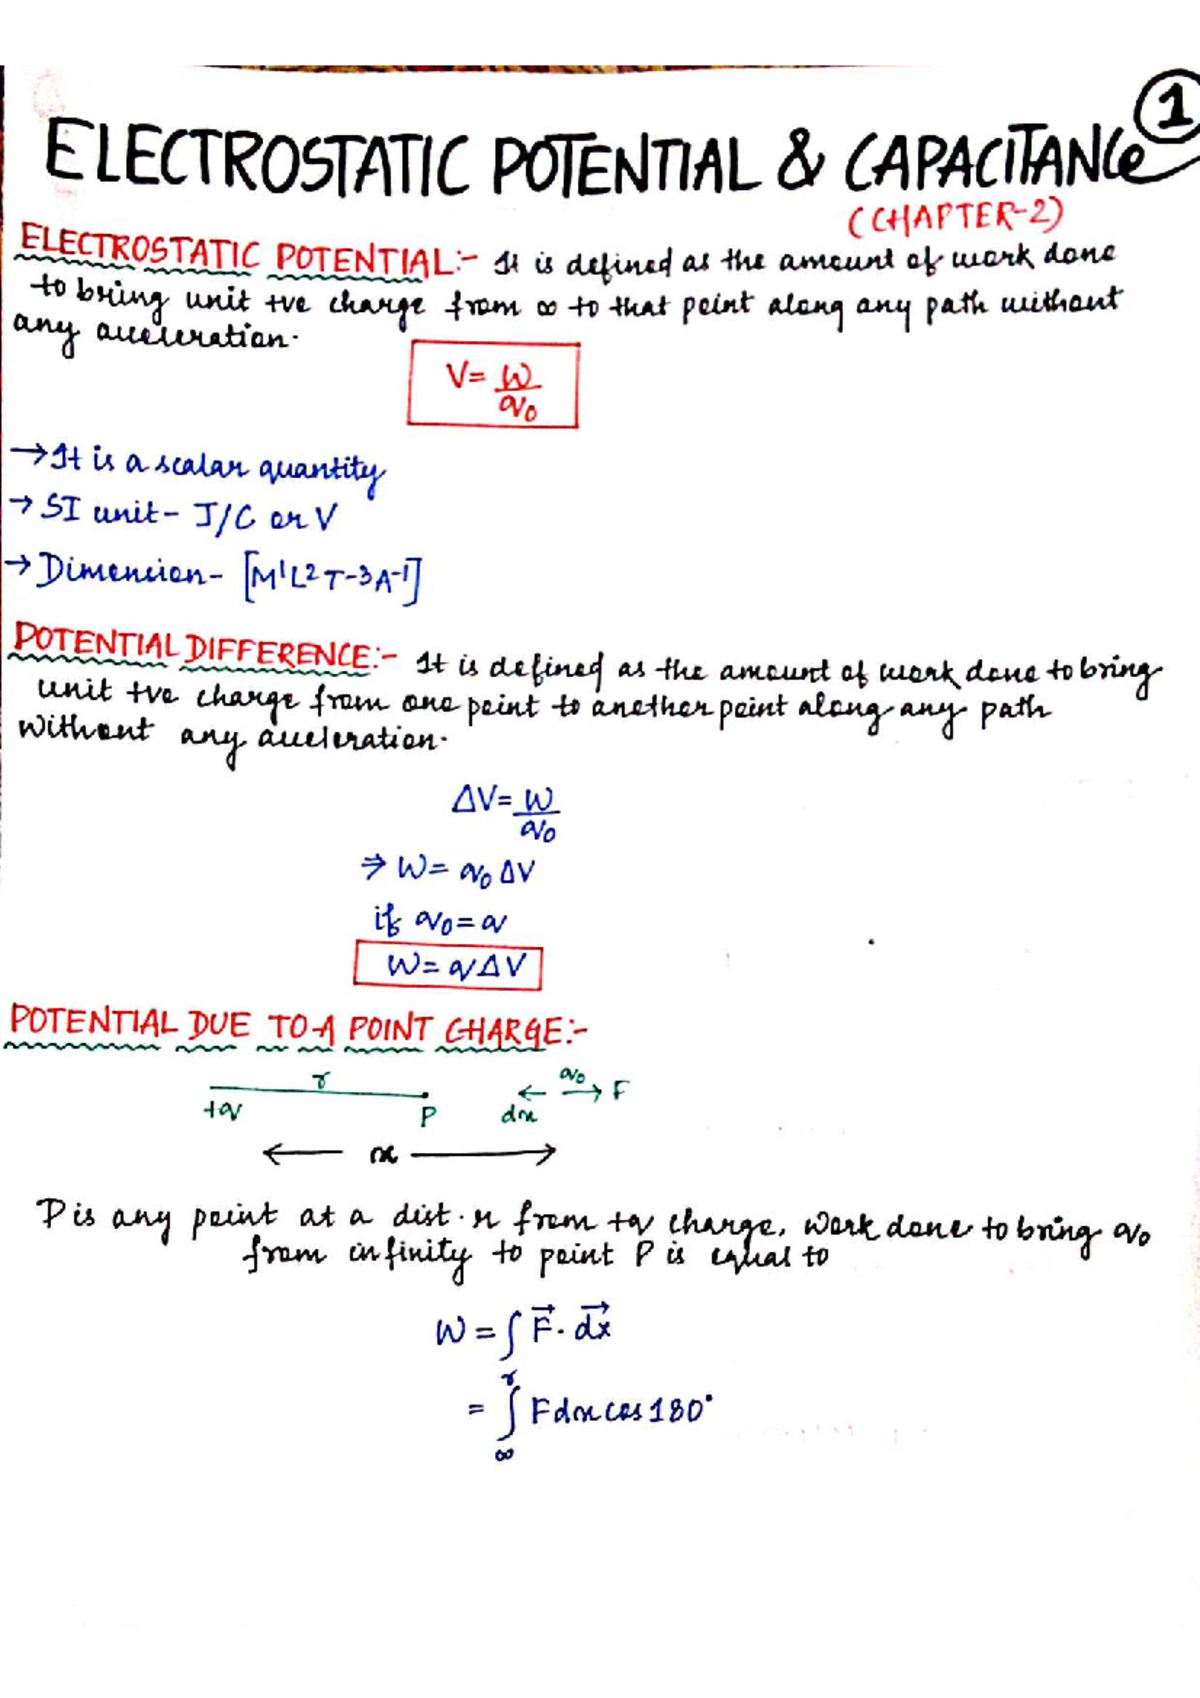 1
ELECTROSTATIC POTENTIAL & CAPACITANCE
(CHAPTER-2)
ELECTROSTATIC POTENTIAL:- It is defined as the amount of work done
to bring unit +ve charge from ∞ to that point along any path without
any acceleration.
V = W/q₀
→ It is a scalar quantity
→ SI unit - J/C or V
→ Dimension - [M¹L²T⁻³A⁻¹]
POTENTIAL DIFFERENCE:- It is defined as the amount of work done to bring
unit +ve charge from one point to another point along any path
without any acceleration.
ΔV = W/q₀
⇒ W = q₀ΔV
if q₀ = q
W = qΔV
POTENTIAL DUE TO A POINT CHARGE:-
r q₀
+q P dx F
x
P is any point at a dist. r from +q charge, work done to bring q₀
from infinity to point P is equal to
W = ∫ F⃗ · dx⃗
= ∫_∞^r F dx cos 180°